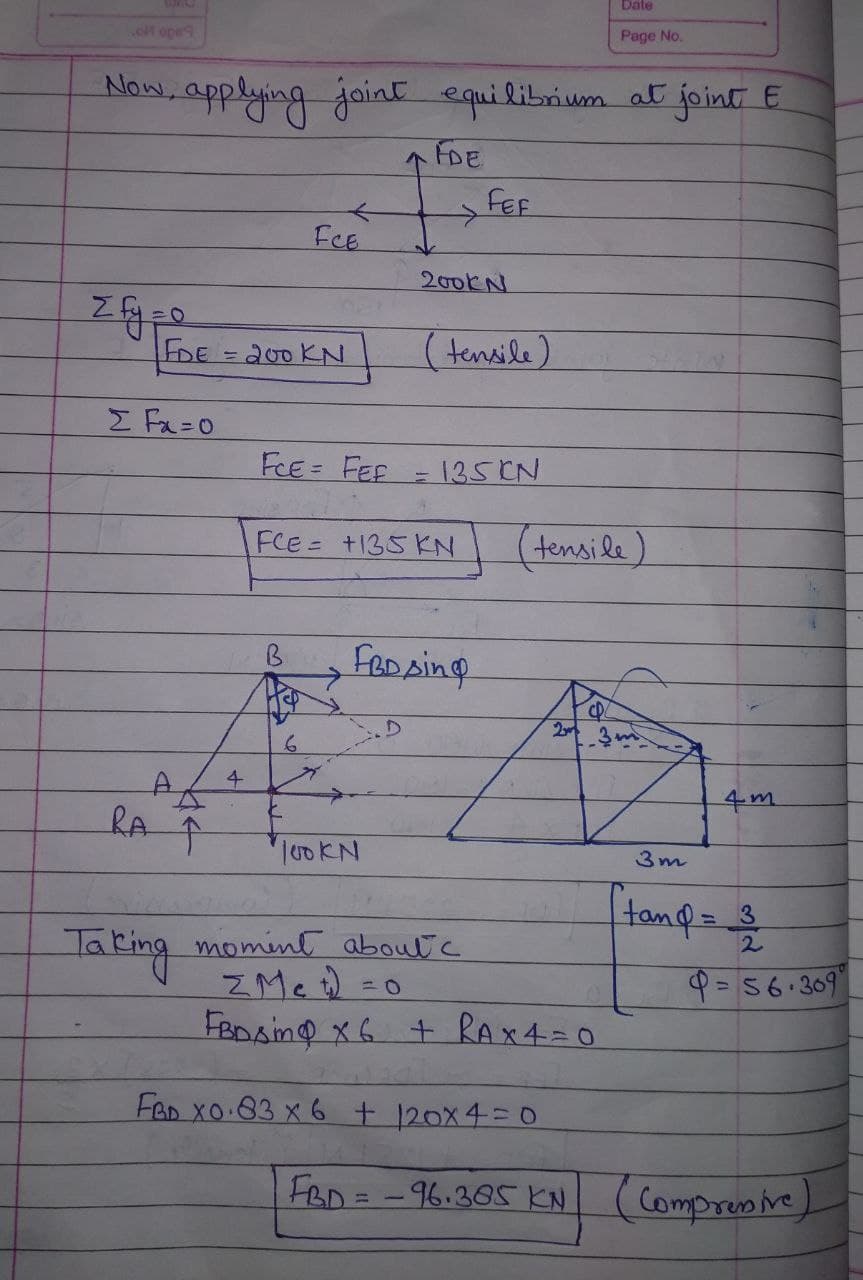 Date
Page No.
Now, applying joint equilibrium at joint E
FDE
FEF
FCE
200KN
Σ Fy=0
FDE = 200 KN (tensile)
Σ Fx=0
FCE = FEF = 135 KN
FCE = +135 KN (tensile)
B FBD sinφ
φ
D
6
A 4
RA
100KN
φ
2m 3m
4m
3m
tanφ = 3/2
φ = 56.309°
Taking moment about C
ΣMc = 0
FBD sinφ x 6 + RA x 4 = 0
FBD x 0.83 x 6 + 120 x 4 = 0
FBD = -96.385 KN (Compressive)